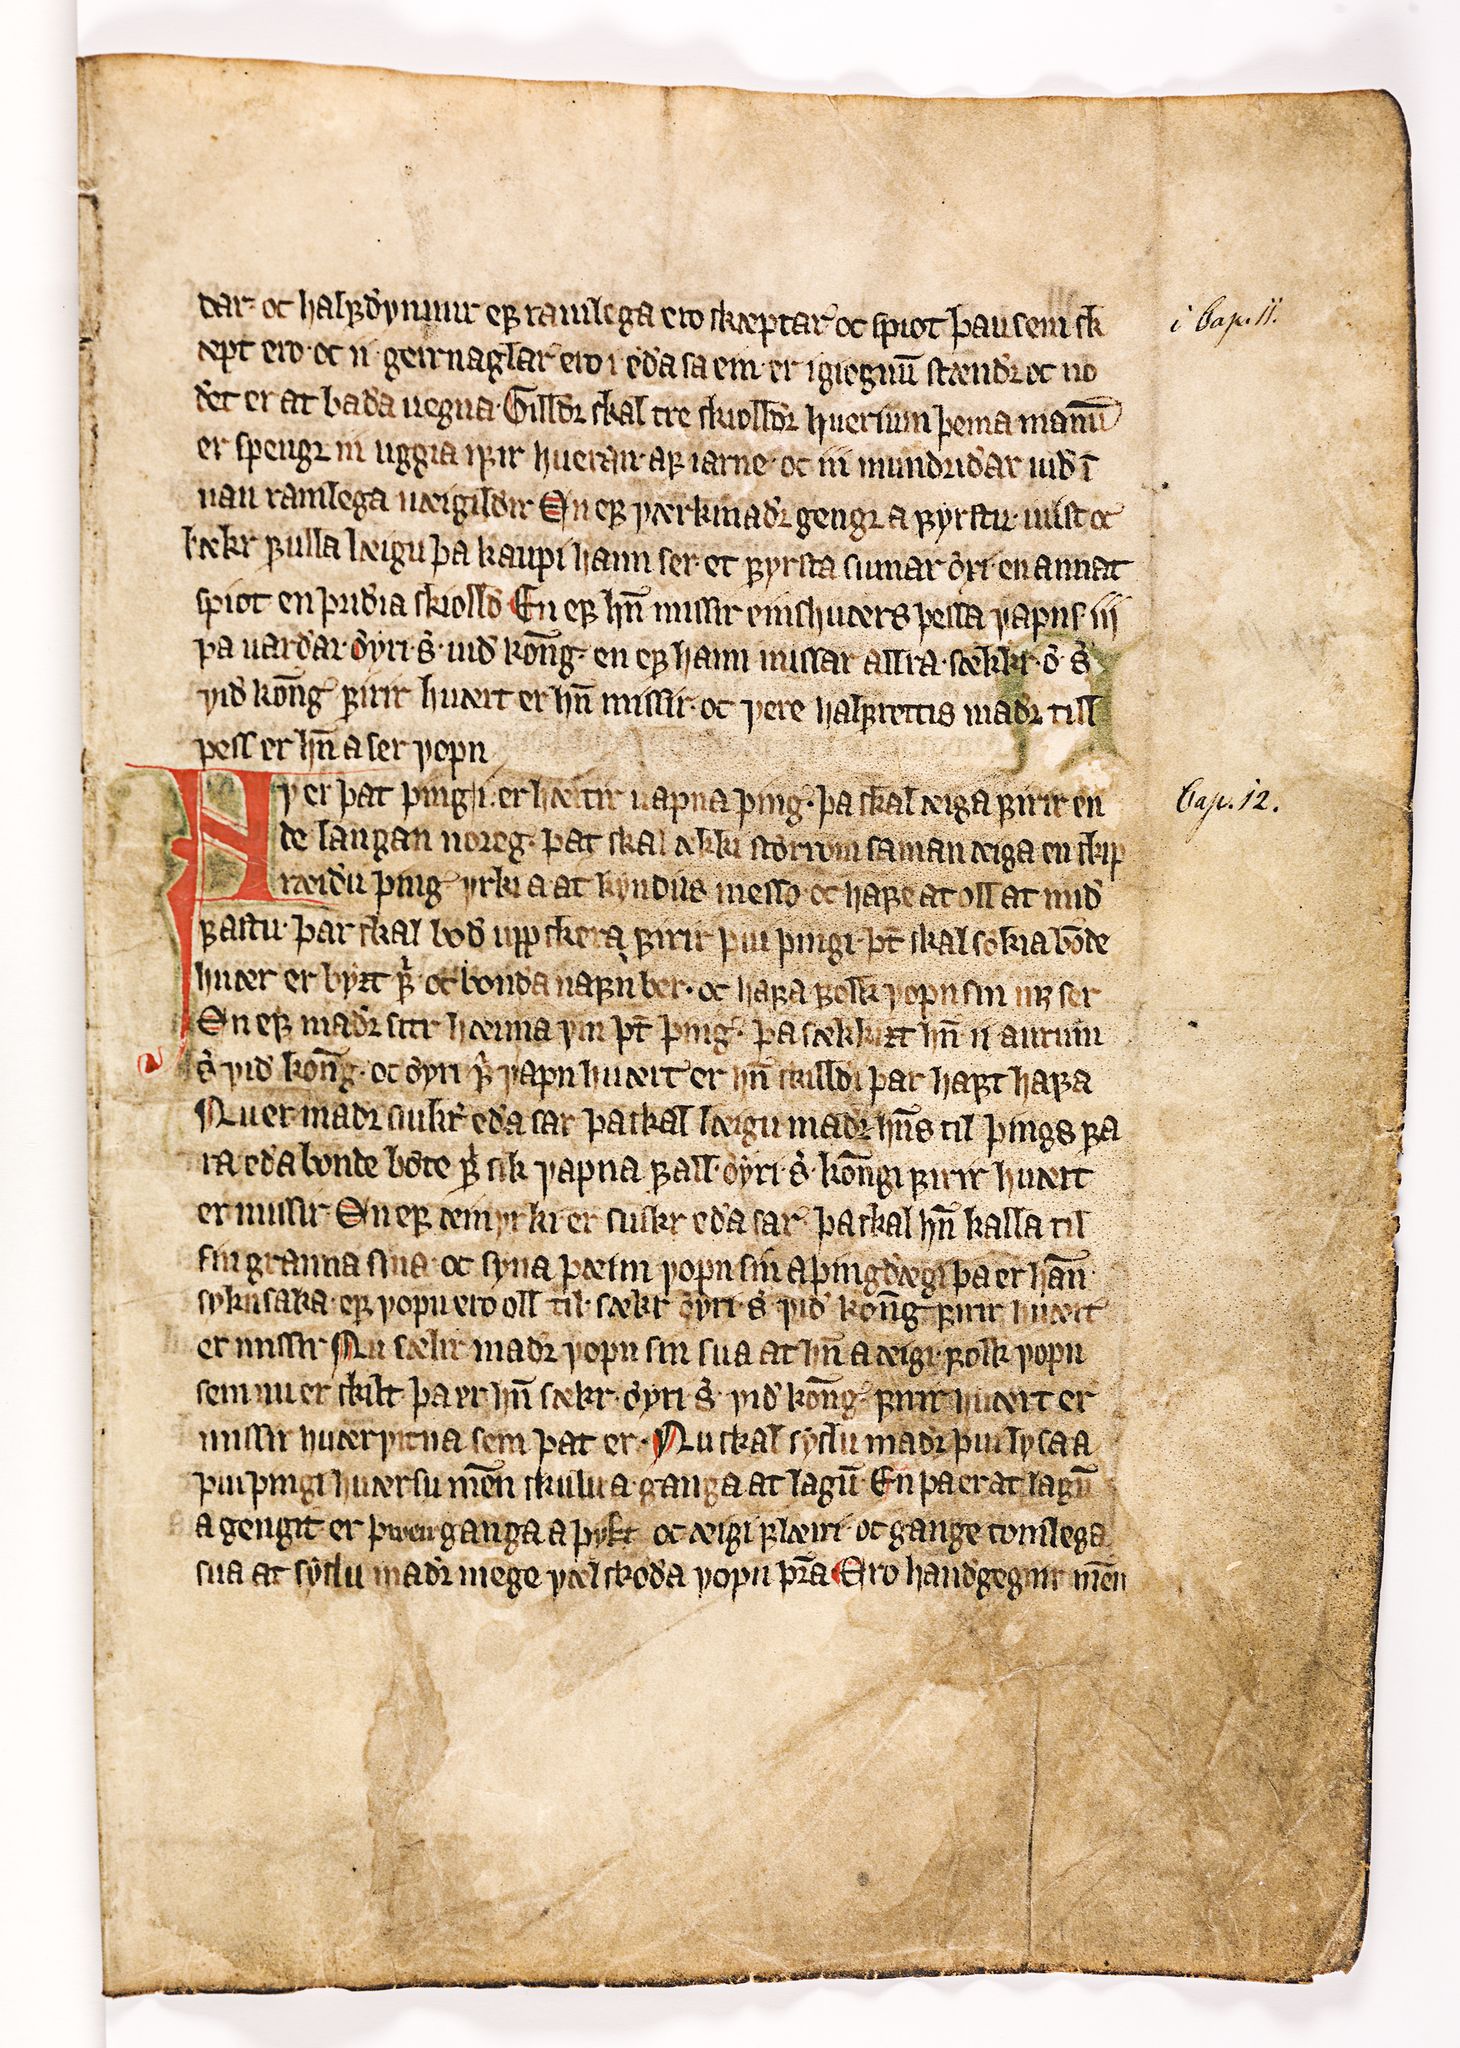 dar· oc halꝼdynnur eꝼ ramlega ero skæptar oc spiot þau sem sk
i Cap. 11.
æpt ero· oc ii· geirnaglar ero i eða sa ein· er igiegnū stændꝛ oc no
det er at bada uegna· Gilldꝛ skal tre skiolldꝛ huerium þeima manū
er spengꝛ iii liggia ıꝼir huerar aꝼ iarne· oc iii mundriðar uið ī
nan ramlega uæigildir En eꝼ værkmaðꝛ gengꝛ a ꝼyrstu· uist oc
tækr ꝼulla læigu þa kaupi hann ser· et ꝼyrsta sumar öxi· en annat
spiot en þriðia skiolld En eꝼ hn̄ missir einshuærs þessa vapns iij
þa uarðar· öyri· s· uið kōng· en eꝼ hann missar allra· sækkr· ö s
við kōng ꝼirir huært er hn̄ missir· oc vere halꝼrettis maðꝛ till
þess er hn̄ a ser vopn
Nv er þat þing i· er hæitir uapna þing· þa skal æiga ꝼirir en
Cap. 12.
de langan noreg· þat skal ækki storrom saman æiga en skip
ræiðu þing yrkia at kyndils messo oc haꝼe at oll at mið
ꝼastu· þar skal boð upp skera ꝼirir þui þingi· þt̄ skal sökia bonde
huær er byrt ꝼ oc bonda naꝼn ber· oc haꝼa ꝼolk vopn sin iꝼ ser
En eꝼ maðꝛ sitr hæima vm þt̄ þing· þa sækkizt hn̄ ii aurum
s við kōng· oc öyri ꝼ vapn huært er hn̄ skilldi þar haꝼt haꝼa
Nu er maðꝛ siukr eða sar þa skal læigu maðꝛ hn̄s til þings ꝼa
ra eða bonde böte ꝼ sik vapna ꝼall· öyri· s· kōngi ꝼirir huært
er missir En eꝼ æinyrki er siukr eða sar þa skal hn̄ kalla til
sin granna sina· oc syna þæim vopn sin a þingdægi þa er hān
sykn saka· eꝼ vopn ero oll til· sækr öyri· s við kōng ꝼirir huært
er missir Nu sælir maðꝛ vopn sin sua at hn̄ a æigi· ꝼolk vopn
sem nu er skilt þa er hn̄ sækr· öyri· s· við kōng· ꝼirir huært er
missir huærvitna sem þat er· Nu skal syslu maðꝛ þui lysa a
þui þingi huærsu mēn skulu a ganga at lagū En þa er at lagū
a gengit er þwen ganga a þykt oc æigi ꝼlæiri· oc gange tomlega
sua at syslu maðꝛ mege væl skoda vopn þr̄a Ero handgegnir mēn